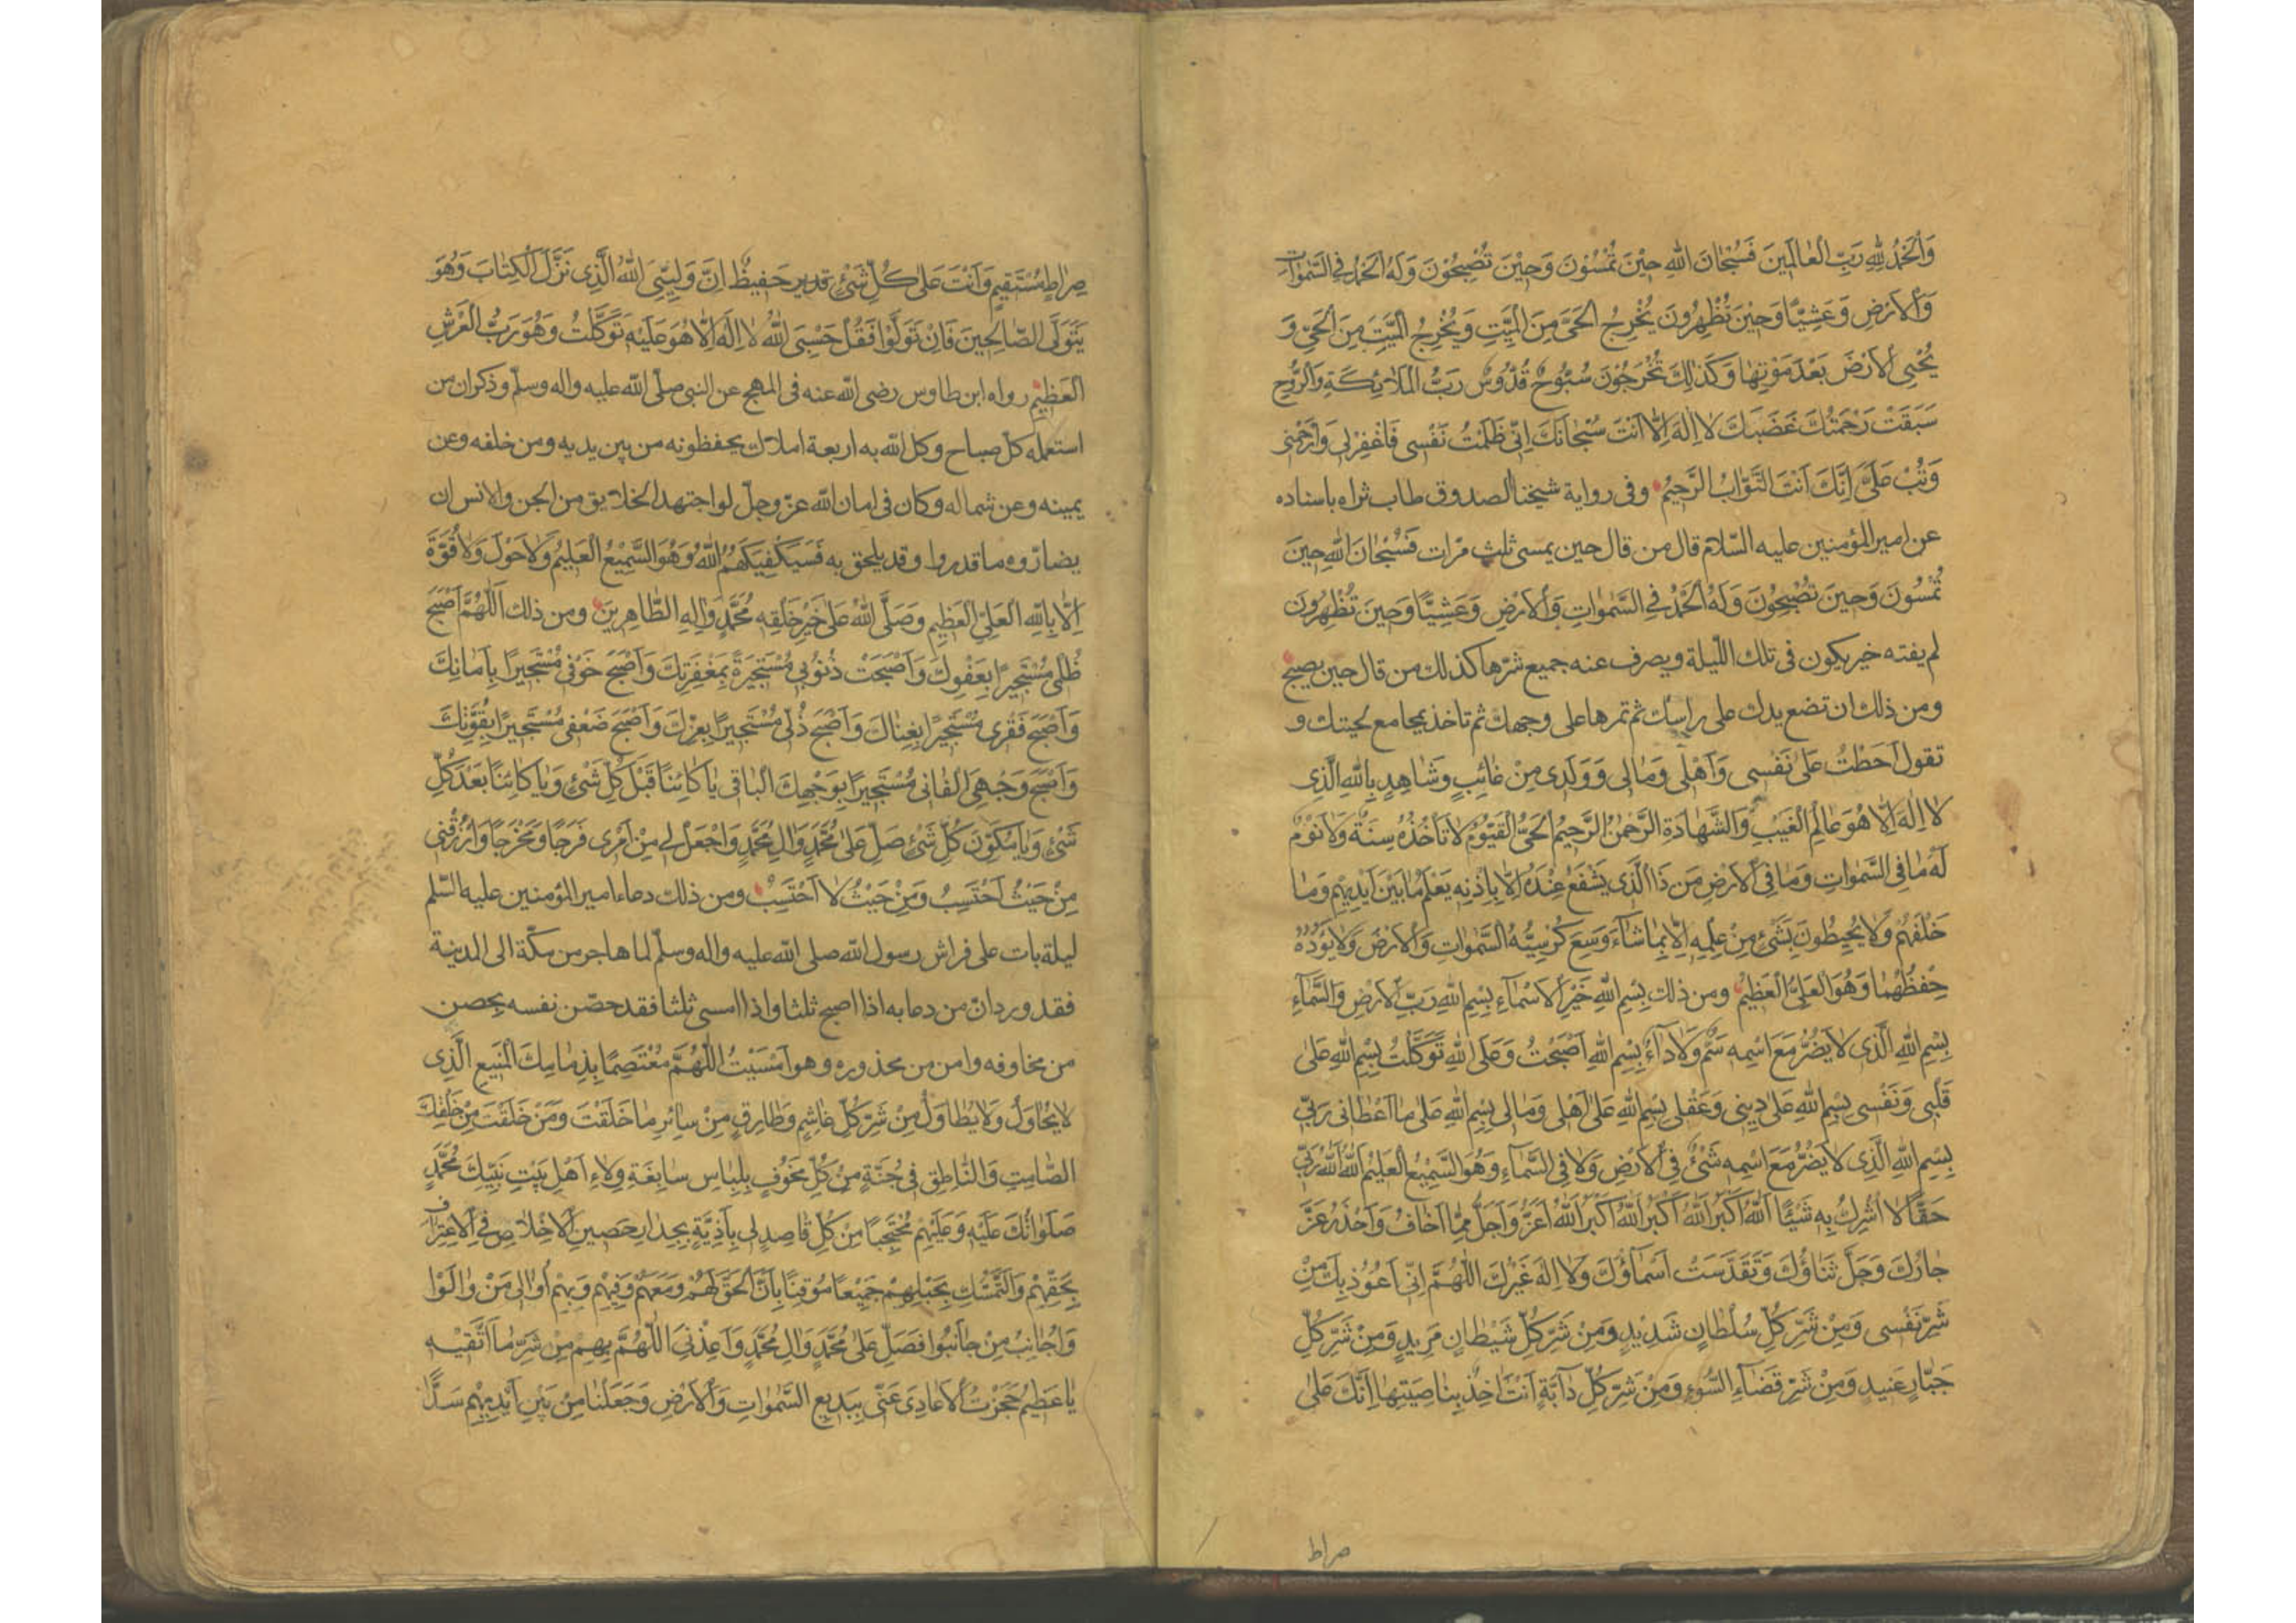 وَالْحَمْدُ لِلّٰهِ رَبِّ الْعٰالَمِينَ فَسُبْحٰانَ اللّٰهِ حِيْنَ تُمْسُوْنَ وَحِيْنَ تُصْبِحُوْنَ وَلَهُ الْحَمْدُ فِي السَّمٰوٰاتِ
وَالْاَرْضِ وَعَشِيًّا وَحِيْنَ تُظْهِرُونَ يُخْرِجُ الْحَىَّ مِنَ الْمَيِّتِ وَيُخْرِجُ الْمَيِّتَ مِنَ الْحَىِّ وَ
يُحْيِى الْاَرْضَ بَعْدَ مَوْتِهٰا وَكَذٰلِكَ تُخْرَجُوْنَ سُبُّوحٌ قُدُّوسٌ رَبُّ الْمَلٰائِكَةِ وَالرُّوحِ
سَبَقَتْ رَحْمَتُكَ غَضَبَكَ لٰا اِلٰهَ اِلّٰا اَنْتَ سُبْحٰانَكَ اِنّى ظَلَمْتُ نَفْسى فَاغْفِرْ لى وَارْحَمْنى
وَتُبْ عَلَىَّ اِنَّكَ اَنْتَ التَّوّٰابُ الرَّحيمُ وفى رواية شيخنا الصدوق طاب ثراه باسناده
عن امير المؤمنين عليه السّلام قال من قال حين يمسى ثلث مرّات فَسُبْحٰانَ اللّٰهِ حِينَ
تُمْسُونَ وَحِينَ تُصْبِحُونَ وَلَهُ الْحَمْدُ فِي السَّمٰوٰاتِ وَالْاَرْضِ وَعَشِيًّا وَحِينَ تُظْهِرُونَ
لم يفته خير يكون فى تلك اللّيلة ويصرف عنه جميع شرّها كذلك من قال حين يصبح
ومن ذلك ان تضع يدك على راسك ثم تمرها على وجهك ثم تاخذ بمجامع لحيتك و
تقول اَحَطْتُ عَلىٰ نَفْسى وَاَهْلى وَمٰالى وَوَلَدى مِنْ غٰائِبٍ وَشٰاهِدٍ بِاللّٰهِ الَّذى
لٰا اِلٰهَ اِلّٰا هُوَ عٰالِمُ الْغَيْبِ وَالشَّهٰادَةِ الرَّحْمٰنُ الرَّحيمُ الْحَىُّ الْقَيُّومُ لٰا تَأْخُذُهُ سِنَةٌ وَلٰا نَوْمٌ
لَهُ مٰا فِى السَّمٰوٰاتِ وَمٰا فِى الْاَرْضِ مَنْ ذَا الَّذى يَشْفَعُ عِنْدَهُ اِلّٰا بِاِذْنِهِ يَعْلَمُ مٰا بَيْنَ اَيْديهِمْ وَمٰا
خَلْفَهُمْ وَلٰا يُحيطُونَ بِشَىْءٍ مِنْ عِلْمِهِ اِلّٰا بِمٰا شٰاءَ وَسِعَ كُرْسِيُّهُ السَّمٰوٰاتِ وَالْاَرْضَ وَلٰا يَؤُدُهُ
حِفْظُهُمٰا وَهُوَ الْعَلِىُّ الْعَظيمُ ومن ذلك بِسْمِ اللّٰهِ خَيْرِ الْاَسْمٰاءِ بِسْمِ اللّٰهِ رَبِّ الْاَرْضِ وَالسَّمٰاءِ
بِسْمِ اللّٰهِ الَّذى لٰا يَضُرُّ مَعَ اسْمِهِ سَمٌّ وَلٰا دٰاءٌ بِسْمِ اللّٰهِ اَصْبَحْتُ وَعَلَى اللّٰهِ تَوَكَّلْتُ بِسْمِ اللّٰهِ عَلىٰ
قَلْبى وَنَفْسى بِسْمِ اللّٰهِ عَلىٰ دينى وَعَقْلى بِسْمِ اللّٰهِ عَلىٰ اَهْلى وَمٰالى بِسْمِ اللّٰهِ عَلىٰ مٰا اَعْطٰانى رَبّى
بِسْمِ اللّٰهِ الَّذى لٰا يَضُرُّ مَعَ اسْمِهِ شَىْءٌ فِى الْاَرْضِ وَلٰا فِى السَّمٰاءِ وَهُوَ السَّميعُ الْعَليمُ اَللّٰهُ اَللّٰهُ رَبّى
حَقًّا لٰا اُشْرِكُ بِهِ شَيْئًا اَللّٰهُ اَكْبَرُ اَللّٰهُ اَكْبَرُ اَللّٰهُ اَكْبَرُ اَللّٰهُ اَعَزُّ وَاَجَلُّ مِمّٰا اَخٰافُ وَاَحْذَرُ عَزَّ
جٰارُكَ وَجَلَّ ثَنٰاؤُكَ وَتَقَدَّسَتْ اَسْمٰاؤُكَ وَلٰا اِلٰهَ غَيْرُكَ اَللّٰهُمَّ اِنّى اَعُوذُ بِكَ مِنْ
شَرِّ نَفْسى وَمِنْ شَرِّ كُلِّ سُلْطٰانٍ شَديدٍ وَمِنْ شَرِّ كُلِّ شَيْطٰانٍ مَريدٍ وَمِنْ شَرِّ كُلِّ
جَبّٰارٍ عَنيدٍ وَمِنْ شَرِّ قَضٰاءِ السُّوءِ وَمِنْ شَرِّ كُلِّ دٰابَّةٍ اَنْتَ اٰخِذٌ بِنٰاصِيَتِهٰا اِنَّكَ عَلىٰ
صراط
صِرٰاطٍ مُسْتَقيمٍ وَاَنْتَ عَلىٰ كُلِّ شَىْءٍ قدير حَفيظٌ اِنَّ وَلِيِّىَ اللّٰهُ الَّذى نَزَّلَ الْكِتٰابَ وَهُوَ
يَتَوَلَّى الصّٰالِحينَ فَاِنْ تَوَلَّوْا فَقُلْ حَسْبِىَ اللّٰهُ لٰا اِلٰهَ اِلّٰا هُوَ عَلَيْهِ تَوَكَّلْتُ وَهُوَ رَبُّ الْعَرْشِ
الْعَظيمِ رواه ابن طاوس رضى اللّٰه عنه فى المهج عن النبى صلّى اللّٰه عليه واله وسلّم وذكر ان من
استعمله كلّ صباح وكل اللّٰه به اربعة املاك يحفظونه من بين يديه ومن خلفه وعن
يمينه وعن شماله وكان فى امان اللّٰه عزّ وجلّ لو اجتهد الخلائق من الجن والانس ان
يضارّوه ما قدروا وقد يلحق به فَسَيَكْفيكَهُمُ اللّٰهُ وَهُوَ السَّميعُ الْعَليمُ وَلٰا حَوْلَ وَلٰا قُوَّةَ
اِلّٰا بِاللّٰهِ الْعَلِىِّ الْعَظيمِ وَصَلَّى اللّٰهُ عَلىٰ خَيْرِ خَلْقِهِ مُحَمَّدٍ وَاٰلِهِ الطّٰاهِرينَ ومن ذلك اَللّٰهُمَّ اَصْبَحَ
ظُلْمى مُسْتَجيرًا بِعَفْوِكَ وَاَصْبَحَتْ ذُنُوبى مُسْتَجيرَةً بِمَغْفِرَتِكَ وَاَصْبَحَ خَوْفى مُسْتَجيرًا بِاَمٰانِكَ
وَاَصْبَحَ فَقْرى مُسْتَجيرًا بِغِنٰاكَ وَاَصْبَحَ ذُلّى مُسْتَجيرًا بِعِزِّكَ وَاَصْبَحَ ضَعْفى مُسْتَجيرًا بِقُوَّتِكَ
وَاَصْبَحَ وَجْهِىَ الْفٰانى مُسْتَجيرًا بِوَجْهِكَ الْبٰاقى يٰا كٰائِنًا قَبْلَ كُلِّ شَىْءٍ وَيٰا كٰائِنًا بَعْدَ كُلِّ
شَىْءٍ وَيٰا مُكَوِّنَ كُلِّ شَىْءٍ صَلِّ عَلىٰ مُحَمَّدٍ وَاٰلِ مُحَمَّدٍ وَاجْعَلْ لى مِنْ اَمْرى فَرَجًا وَمَخْرَجًا وَارْزُقْنى
مِنْ حَيْثُ اَحْتَسِبُ وَمِنْ حَيْثُ لٰا اَحْتَسِبُ ومن ذلك دعاء امير المؤمنين عليه السّلم
ليلة بات على فراش رسول اللّٰه صلى اللّٰه عليه واله وسلّم لما هاجر من مكّة الى المدينة
فقد ورد انّ من دعا به اذا اصبح ثلثا واذا امسى ثلثا فقد حصّن نفسه بحصن
من مخاوفه وامن من محذوره وهو اَمْسَيْتُ اَللّٰهُمَّ مُعْتَصِمًا بِذِمٰامِكَ الْمَنيعِ الَّذى
لٰا يُحٰاوَلُ وَلٰا يُطٰاوَلُ مِنْ شَرِّ كُلِّ غٰاشِمٍ وَطٰارِقٍ مِنْ سٰائِرِ مٰا خَلَقْتَ وَمَنْ خَلَقْتَ مِنْ خَلْقِكَ
الصّٰامِتِ وَالنّٰاطِقِ فى جُنَّةٍ مِنْ كُلِّ مَخُوفٍ بِلِبٰاسٍ سٰابِغَةٍ وِلٰاءِ اَهْلِ بَيْتِ نَبِيِّكَ مُحَمَّدٍ
صَلَوٰاتُكَ عَلَيْهِ وَعَلَيْهِمْ مُحْتَجِبًا مِنْ كُلِّ قٰاصِدٍ لى بِاَذِيَّةٍ بِجِدٰارٍ حَصينِ الْاِخْلٰاصِ فِى الْاِعْتِرٰافِ
بِحَقِّهِمْ وَالتَّمَسُّكِ بِحَبْلِهِمْ جَميعًا مُوقِنًا بِاَنَّ الْحَقَّ لَهُمْ وَمَعَهُمْ وَفيهِمْ وَبِهِمْ اُوٰالى مَنْ وٰالَوْا
وَاُجٰانِبُ مَنْ جٰانَبُوا فَصَلِّ عَلىٰ مُحَمَّدٍ وَاٰلِ مُحَمَّدٍ وَاَعِذْنِى اَللّٰهُمَّ بِهِمْ مِنْ شَرِّ مٰا اَتَّقيهِ
يٰا عَظيمُ حَجَزْتُ الْاَعٰادِىَ عَنّى بِبَديعِ السَّمٰوٰاتِ وَالْاَرْضِ وَجَعَلْنٰا مِنْ بَيْنِ اَيْديهِمْ سَدًّا